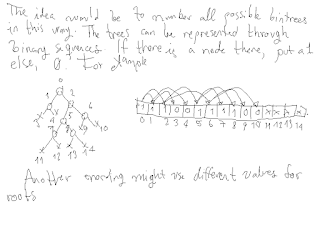 The idea would be to number all possible bintrees
in this way. The trees can be represented through
binary sequences If there is a node there, put a 1
else, 0. For example
0
1 2
3 4 5 6
7 8 9 10
11 12 13 14
1 1 1 0 0 1 1 1 1 0 0
0 1 2 3 4 5 6 7 8 9 10 11 12 13 14
Another encoding might use different values for
roots